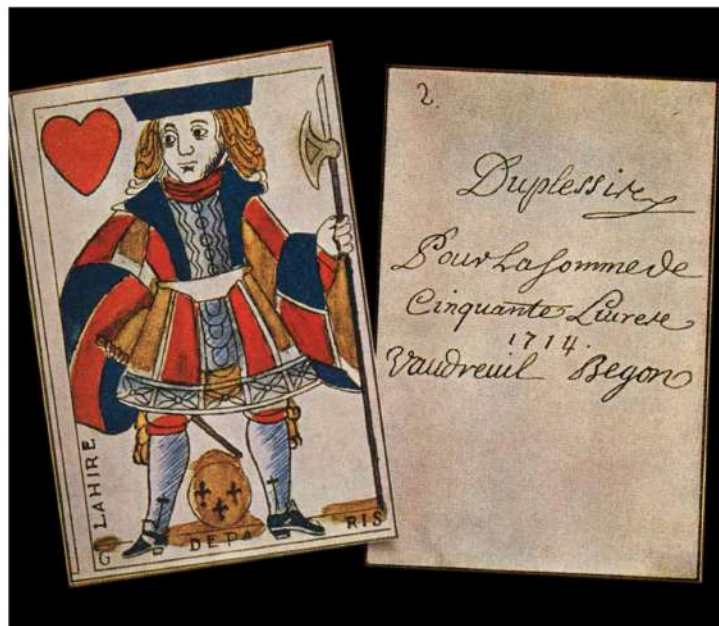 LAHIRE
G DE PA RIS
2.
Duplessis
Pour la somme de
Cinquante Livres
1714.
Vaudreuil Begon